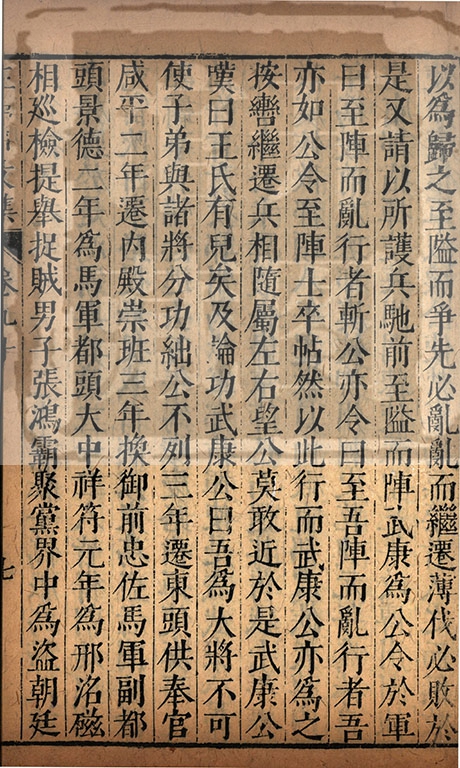 以為歸之至隘而爭先必亂亂而繼遷薄伐必敗於
是又請以所護兵馳前至隘而陣武康為公令於軍
曰至陣而亂行者斬公亦令曰至吾陣而亂行者吾
亦如公令至陣士卒帖然以此行而武康公亦為之
按轡繼遷兵相隨屬左右望公莫敢近於是武康公
嘆曰王氏有兒矣及論功武康公曰吾為大將不可
使子弟與諸將分功絀公不列三年遷東頭供奉官
咸平二年遷內殿崇班三年換御前忠佐馬軍副都
頭景德二年為馬軍都頭大中祥符元年為邢洺磁
相巡檢提舉捉賊男子張鴻霸聚黨界中為盜朝廷
卷九十
七